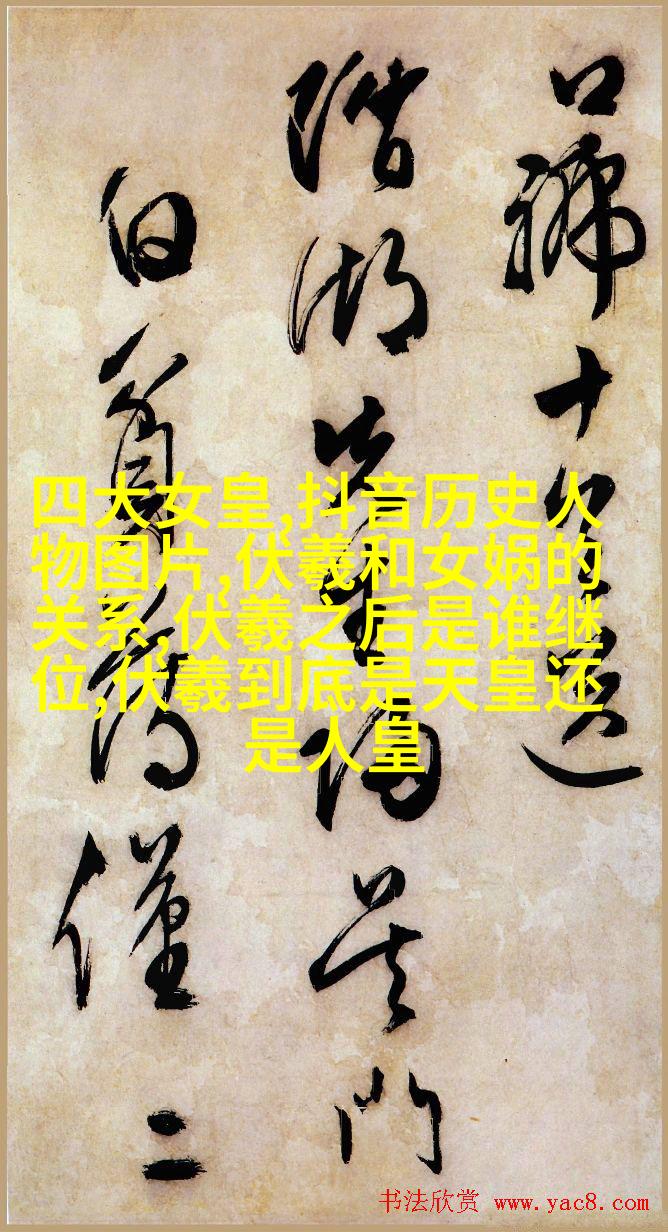 四大女皇,抖音历史人
物图片,伏羲和女娲的
关系,伏羲之后是谁继
位,伏羲到底是天皇还
是人皇
口號十首送
湖先生歸吳門
僅二
书法欣赏 www.yac8.com